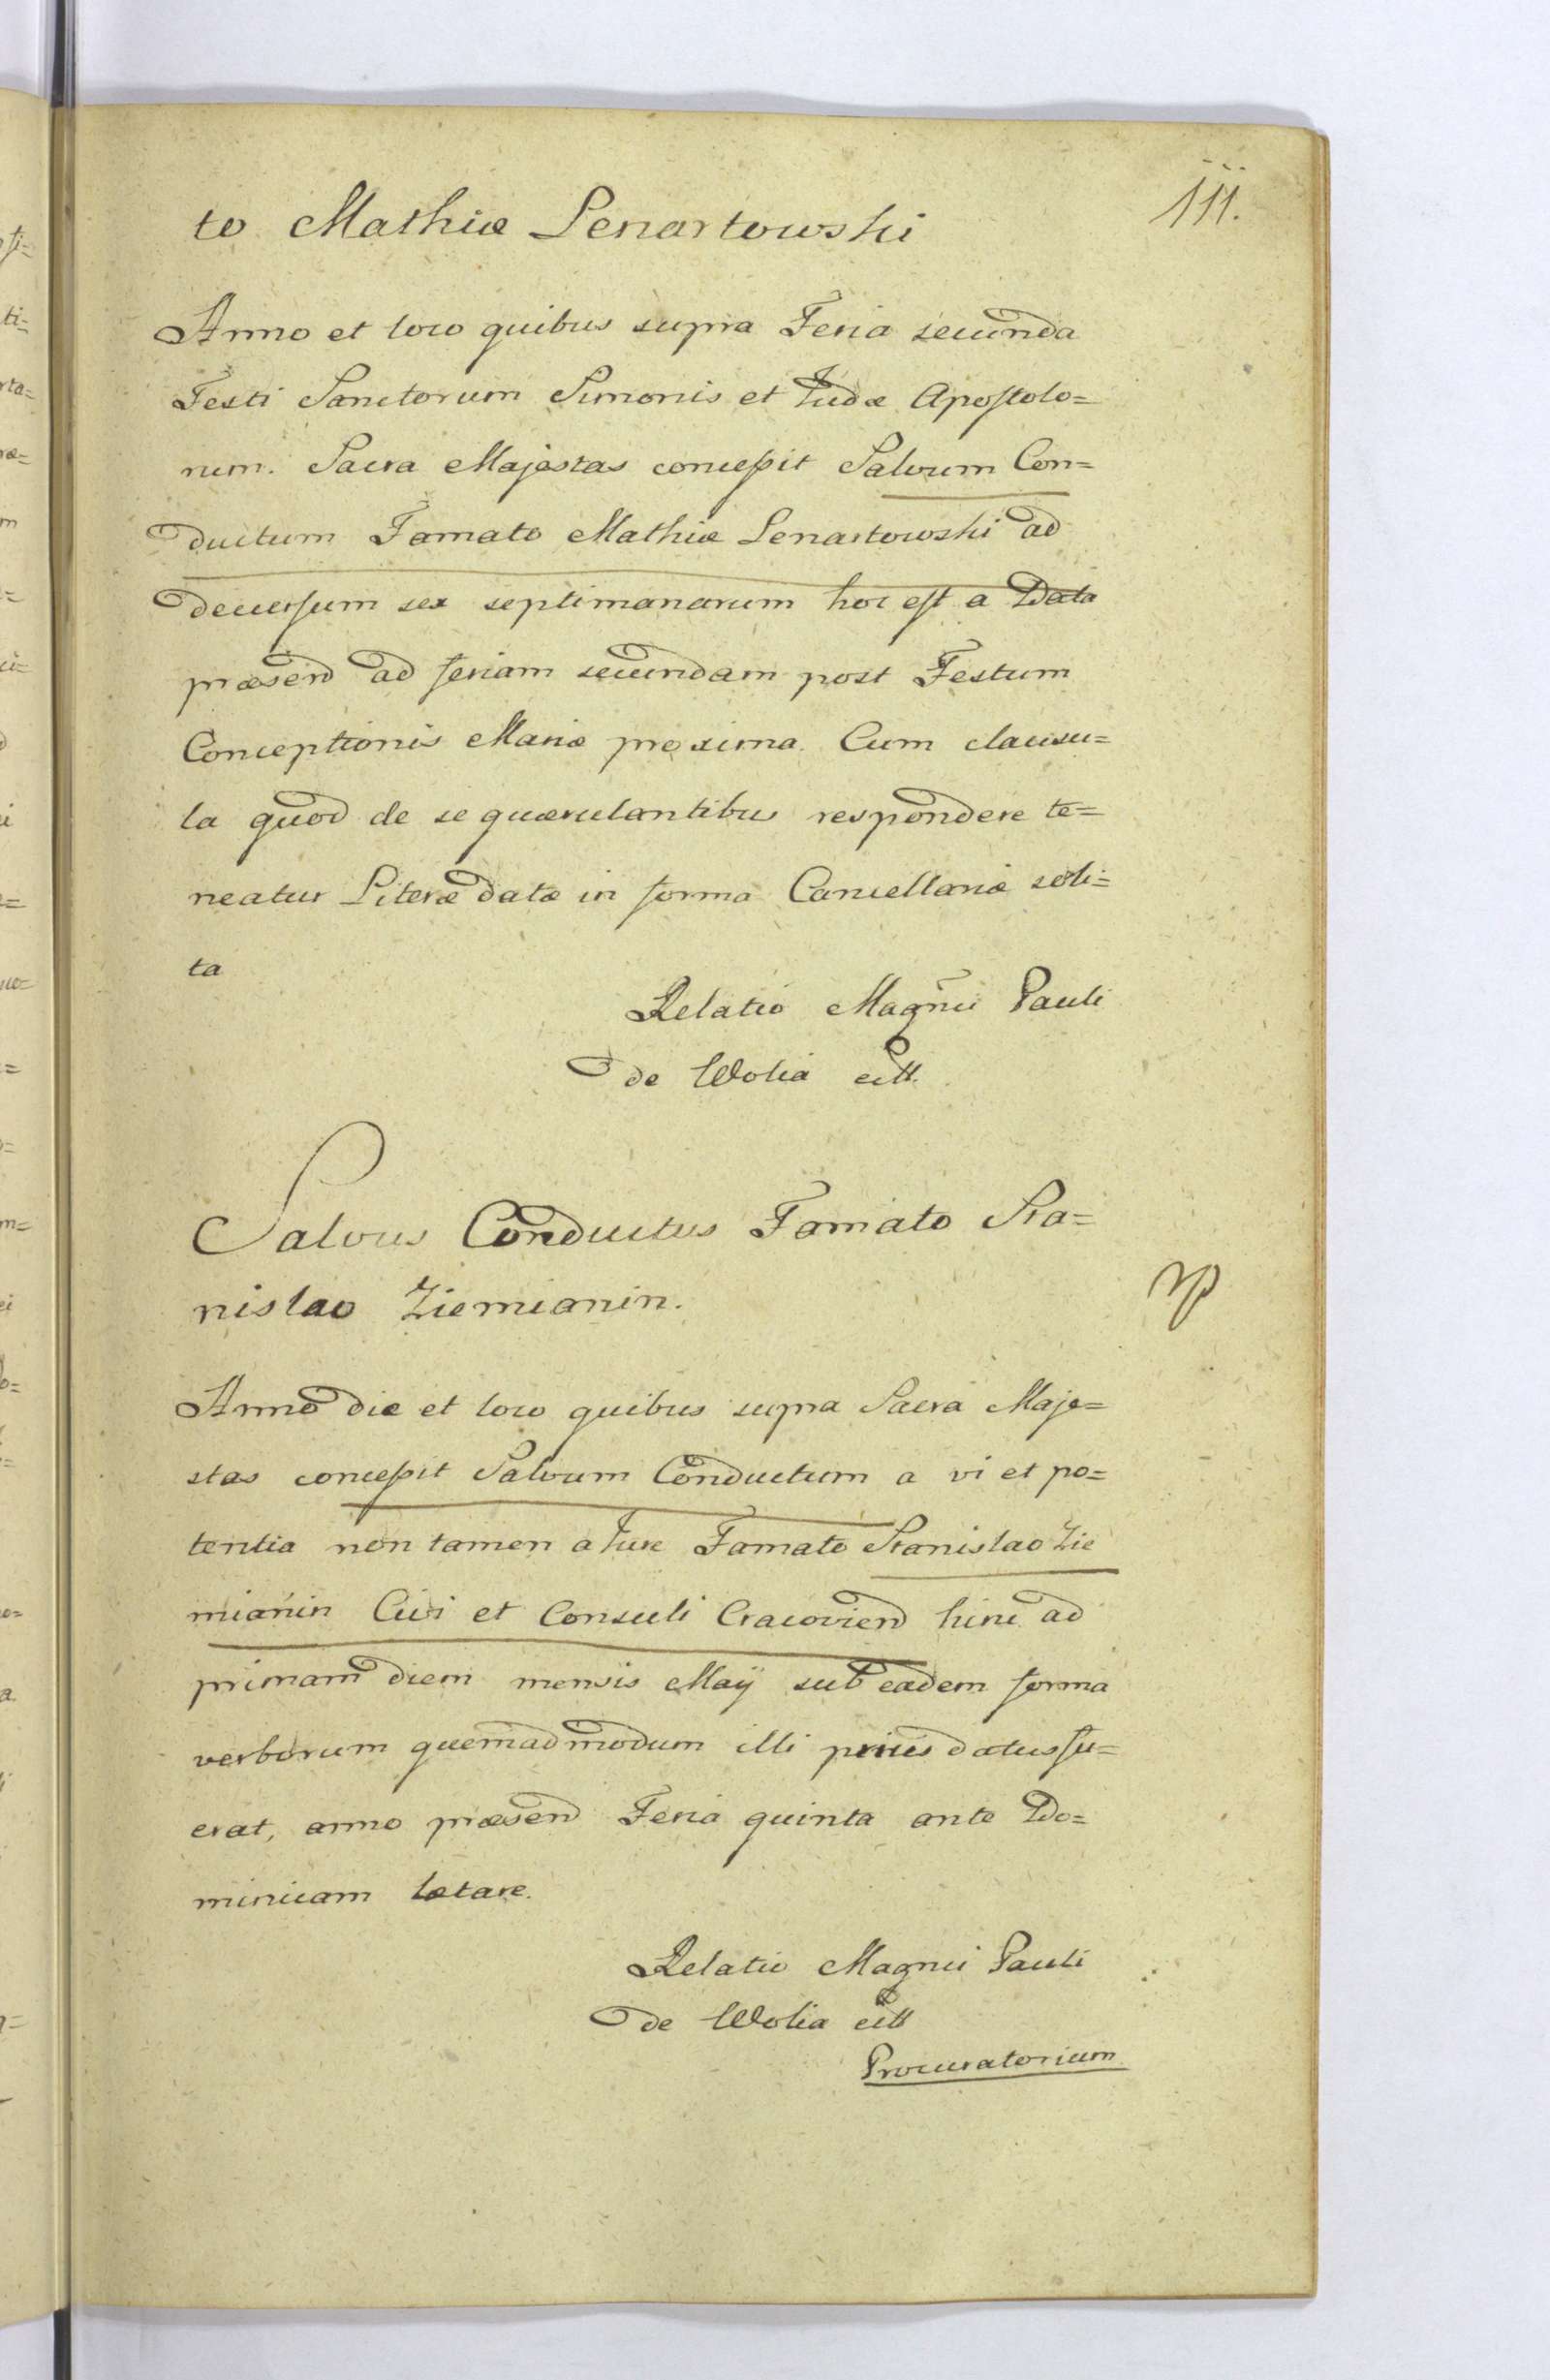 111.
to Mathiæ Lenartowski
Anno et loco quibus supra Feria secunda
Festi Sanctorum Simonis et Judæ Apostolo=
rum. Sacra Majestas concessit Salvum Con=
ductum Famato Mathiæ Lenartowski ad
decursum sex septimanarum hoc est a Data
præsend ad feriam secundam post Festum
Conceptionis Mariæ proxima. Cum clausu=
la quod de se quærulantibus respondere te=
neatur Literæ datæ in forma Cancellariæ soli=
ta
Relatio Magnci Pauli
de Wolia ectt.
Salvus Conductus Famato Sta=
nislao Ziemianin.
Anno die et loco quibus supra Sacra Maje=
stas concessit Salvum Conductum a vi et po=
tentia non tamen a Jure Famato Stanislao Zie
mianin Civi et Consuli Cracoviend hinc ad
primam diem mensis Maÿ sub eadem forma
verborum quemadmodum illi prius datus fu=
erat, anno præsend Feria quinta ante Do=
minicam lætare.
Relatio Magnci Pauli
de Wolia ectt
Procuratorium